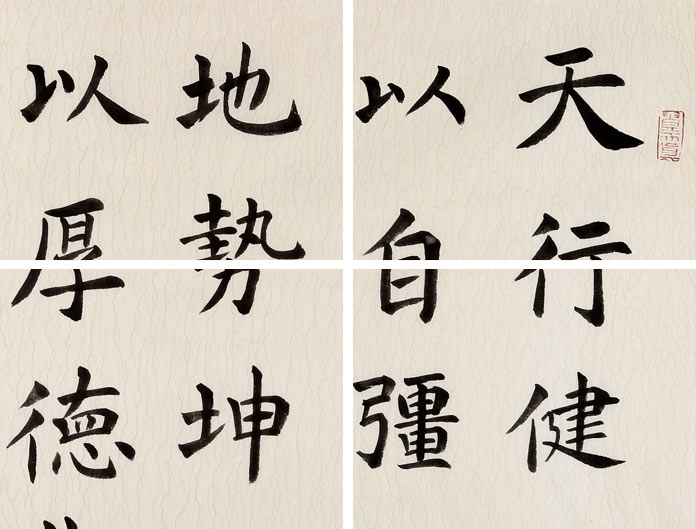 天行健
以自彊
地勢坤
以厚德